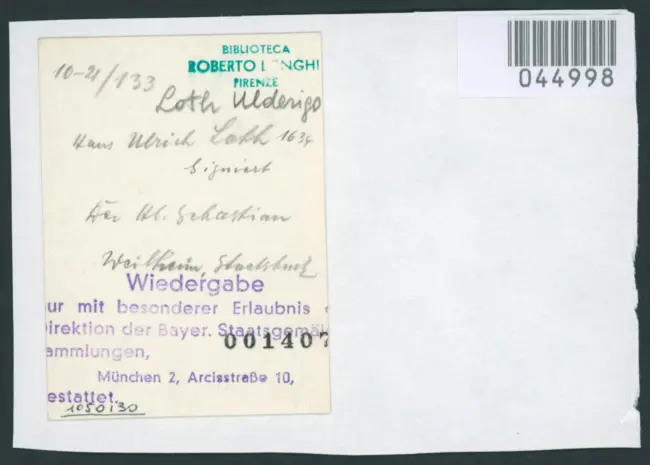 BIBLIOTECA
ROBERTO L NGHI
FIRENZE
044998
10-21/133
Loth Ulderigo
Hans Ulrich Loth 1634
Signiert
Der Hl. Sebastian
Weilheim,
Wiedergabe
ur mit besonderer Erlaubnis
irektion der Bayer. Staatsgemäl
001407
ammlungen,
München 2, Arcisstraße 10,
estattet.
1050130